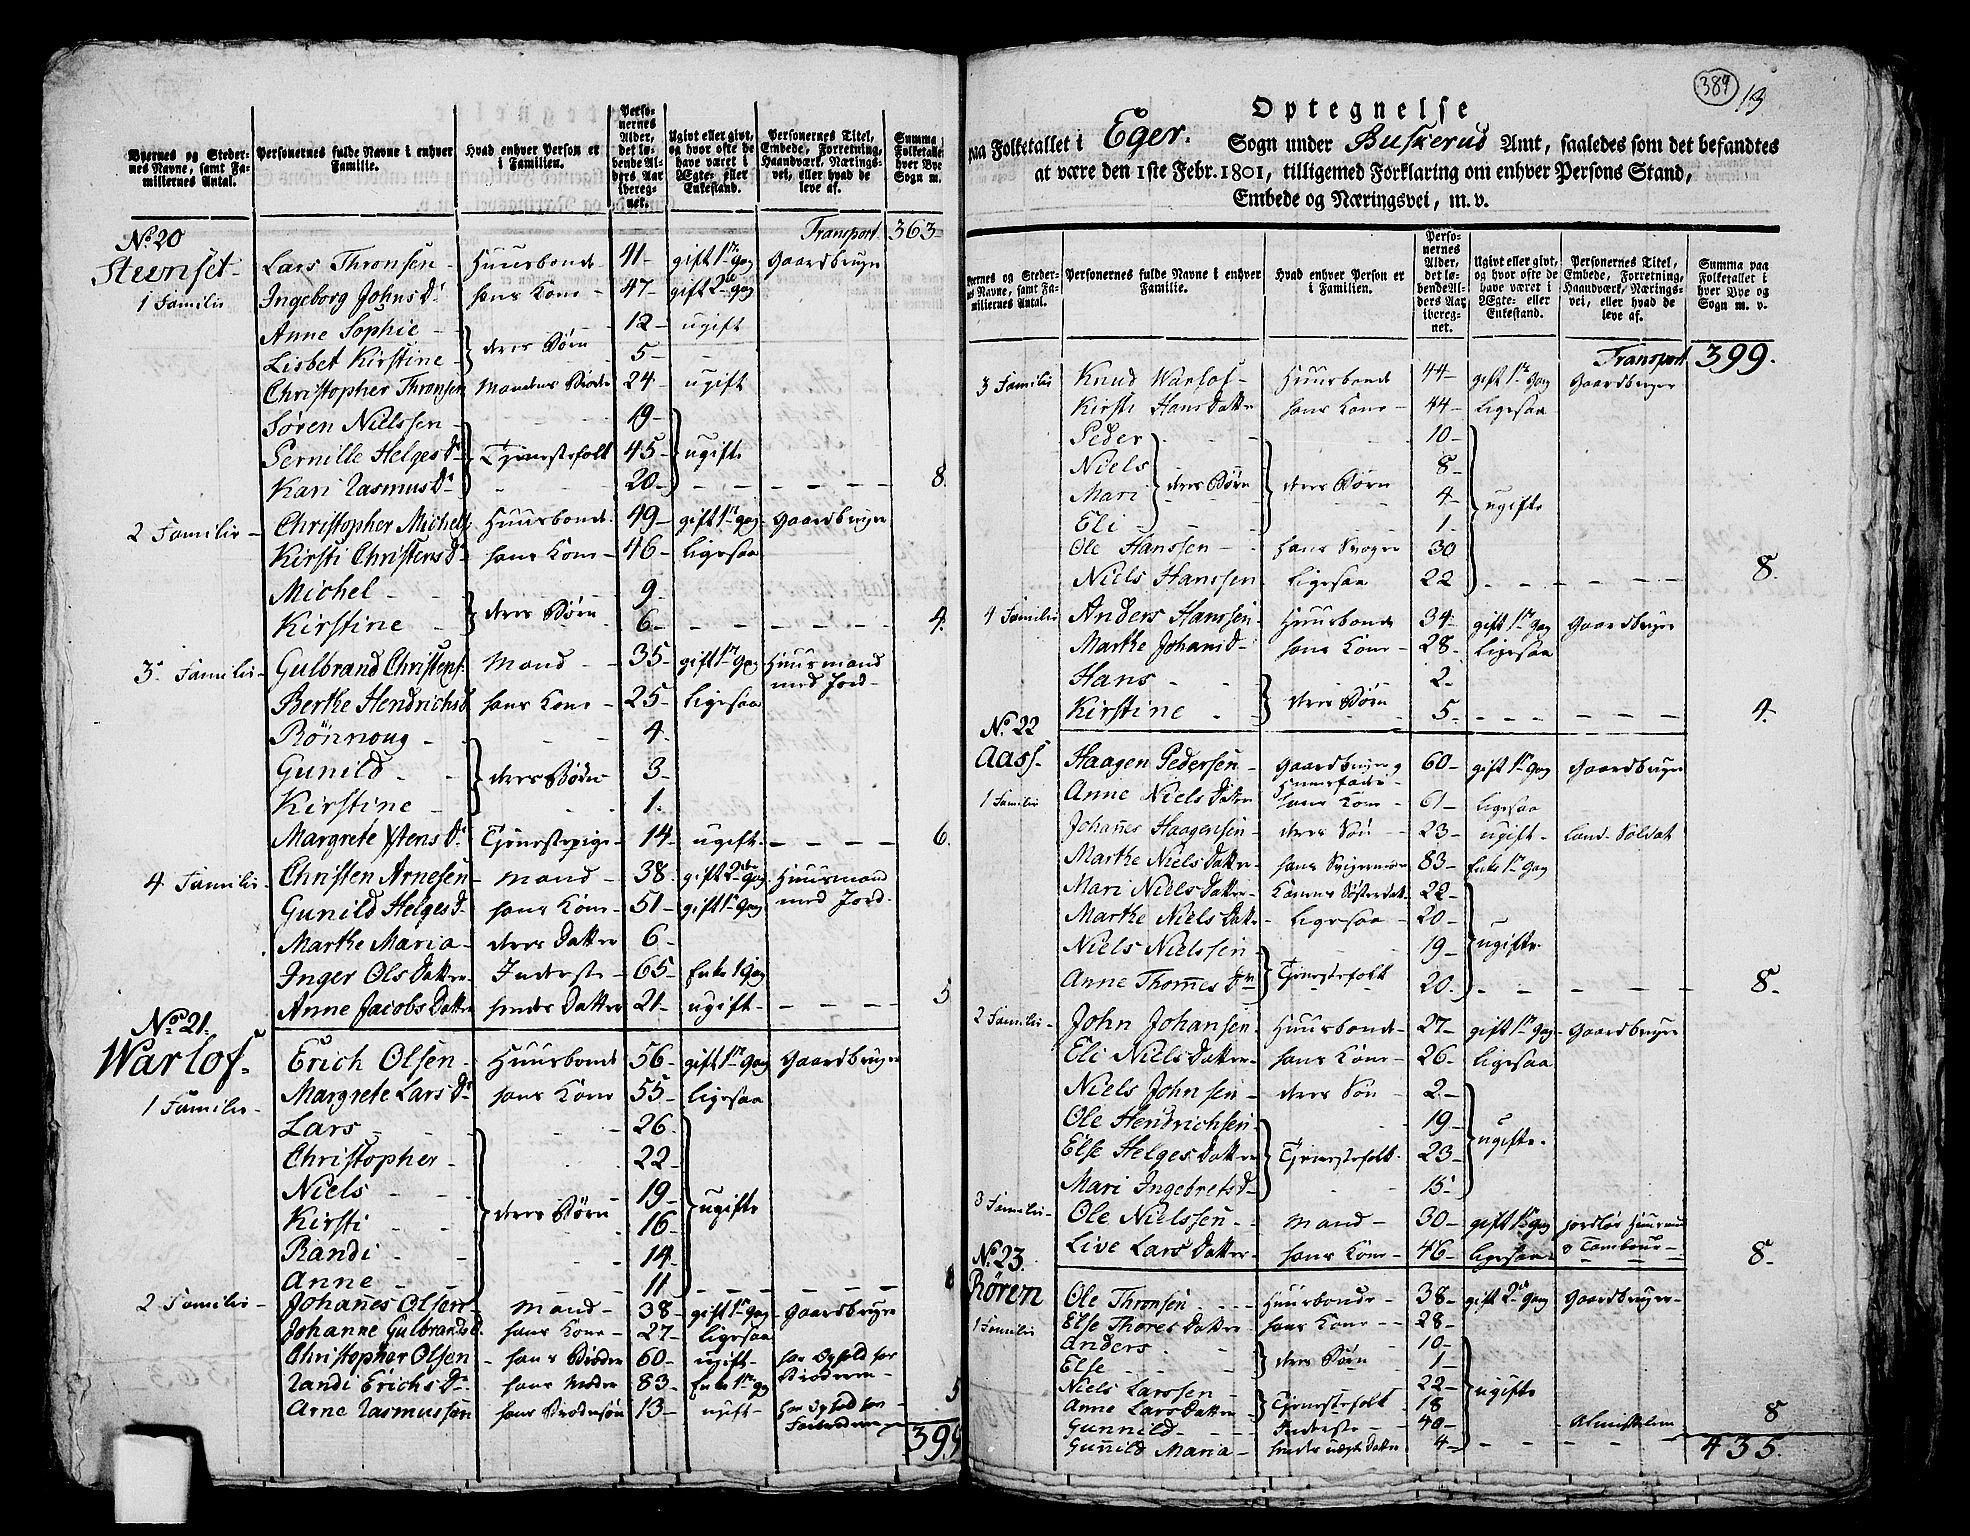 Byernes og Steder-
nes Navne, samt Fa-
miliernes Antal.
Personernes fulde Navne i enhver
Familie.
Hvad enhver Person er
i Familien.
Perso-
nernes
Alder,
det lø-
bende Al-
ders Aar
iberegn-
net.
Ugivt eller givt,
og hvor ofte de
have været i
Ægte- eller
Enkestand.
Personernes Titel,
Embede, Forretning,
Haandværk, Nærings-
vei, eller hvad de
leve af.
Summa
Folketallet
hver Bye
Sogn m.
Transport 363
No 20
Steenset
1 Familie
Lars Thronsen Huusbonde 41 gift 1te Gang Gaardbruger
Ingeborg Johns Dr hans Kone 47 gift 2de Gang
Anne Sophie 12 ugift
deres Børn
Lisbet Kirstine 5
Christopher Thronsen Mandens Broder 24 ugift
Søren Nielssen 19
Pernille Helges Dr Tjenestefolk 45 ugifte
Kari Rasmus Dr 20 8
2 Familie Christopher Michels Huusbonde 49 gift 1te Gang Gaardbruger
Kirsti Christens Dr hans Kone 46 ligesaa
Michel 9
deres Børn
Kirstine 6 4
3 Familie Gulbrand Christens Mand 35 gift 1te Gang Huusmand
med Jord
Berthe Hendrichs D hans Kone 25 ligesaa
Rönnoug 4
Gunild deres Børn 3
Kirstine 1
Margrete Stens Dr Tjenestepige 14 ugift 6
4 Familie Christen Arnesen Mand 38 gift 2de Gang Huusmand
med Jord
Gunild Helges D hans Kone 51 gift 1te Gang
Marthe Maria deres Datter 6
Inger Ols Datter Inderste 65 Enke 1 Gang
Anne Jacobs Datter hendes Datter 21 ugift 5
No 21
Warlof
1 Familie
Erich Olsen Huusbonde 56 gift 1te Gang Gaardbruger
Margrete Lars Dr hans Kone 55 ligesaa
Lars 26
Christopher 22
Niels 19
deres Børn ugifte
Kirsti 16
Randi 14
Anne 11
2 Familie Johannes Olsen Mand 38 gift 1te Gang Gaardbruger
Johanne Gulbrands D hans Kone 27 ligesaa
Christopher Olsen hans Broder 60 ugift har Ophold hos
Broderen
Randi Erichs Dr hans Moder 83 Enke 1te Gang
Arne Rasmussen hans Brodersøn 13 ugift har Ophold hos
5
399
389
13
Optegnelse
paa Folketallet i Eger. Sogn under Buskerud Amt, saaledes som det befandtes
at være den 1ste Febr. 1801, tilligemed Forklaring om enhver Persons Stand,
Embede og Næringsvei, m. v.
Byernes og Steder-
nes Navne, samt Fa-
miliernes Antal.
Personernes fulde Navne i enhver
Familie.
Hvad enhver Person er
i Familien.
Perso-
nernes
Alder,
det lø-
bende Al-
ders Aar
iberegn-
net.
Ugivt eller givt,
og hvor ofte de
have været i
Ægte- eller
Enkestand.
Personernes Titel,
Embede, Forretning,
Haandværk, Nærings-
vei, eller hvad de
leve af.
Summa paa
Folketallet i
hver Bye og
Sogn m. v.
Transport 399.
3 Familie Knud Warlof Huusbonde 44 gift 1te Gang Gaardbruger
Kirsti Hans Datter hans Kone 44 ligesaa
Peder 10
Niels 8
deres Børn deres Børn
Mari 4 ugifte
Eli 1
Ole Hanssen hans Svoger 30
Niels Hanssen ligesaa 22 8.
4 Familie Anders Hanssen Huusbonde 34 gift 1te Gang Gaardbruger
Marthe Johans D hans Kone 28 ligesaa
Hans 2
deres Børn
Kirstine 5 4
No 22
Aass
1 Familie
Haagen Pedersen Gaardbruger og
Huusfader 60 gift 1te Gang Gaardbruger
Anne Niels Datter hans Kone 61 ligesaa
Johannes Haagensen deres Søn 23 ugift Land-Soldat
Marthe Niels Datter hans Svigermoer 83 Enke 1te Gang
Mari Niels Datter Konens Søsterdatt. 22
Marthe Niels Dattr ligesaa 20
ugifte
Niels Nielssen 19
Tjenestefolk
Anne Thommes Dr 20 8
2 Familie John Johansen Huusbonde 27 gift 1te Gang Gaardbruger
Eli Niels Datter hans Kone 26 ligesaa
Niels Johnsen deres Søn 2
Ole Hendrichsen 19
ugifte
Else Helges Datter Tjenestefolk 23
Mari Ingebrets D 15
3 Familie Ole Nielssen Mand 30 gift 1te Gang jordløs Huusmand
Live Lars Datter hans Kone 46 ligesaa o Tambour 8
No 23.
Rören
1 Familie
Ole Thronsen Huusbonde 38 gift 2de Gang Gaardbruger
Else Thores Datter hans Kone 28
Anders 10
deres Børn
Else 1
Niels Larssen 22 ugifte
Tjenestefolk
Anne Lars Datter 18
Gunnild Inderste 40 Almisselem 8
Gunnild Maria hendes uægte Datter 4
435.